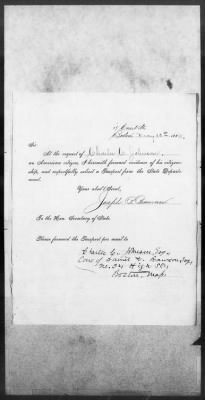 Boston, May
Sir:
At the request of Charles C. Johnson,
an American citizen, I herewith forward evidence of his citizen-
ship, and respectfully solicit a Passport from the State Depart-
ment.
Your ob't Serv't,
Joseph
To the Hon. Secretary of State.
Please forward the Passport per mail to
Charles C. Johnson, Esq.,
Care of Daniel
No. 34 High St.,
Boston, Mass.